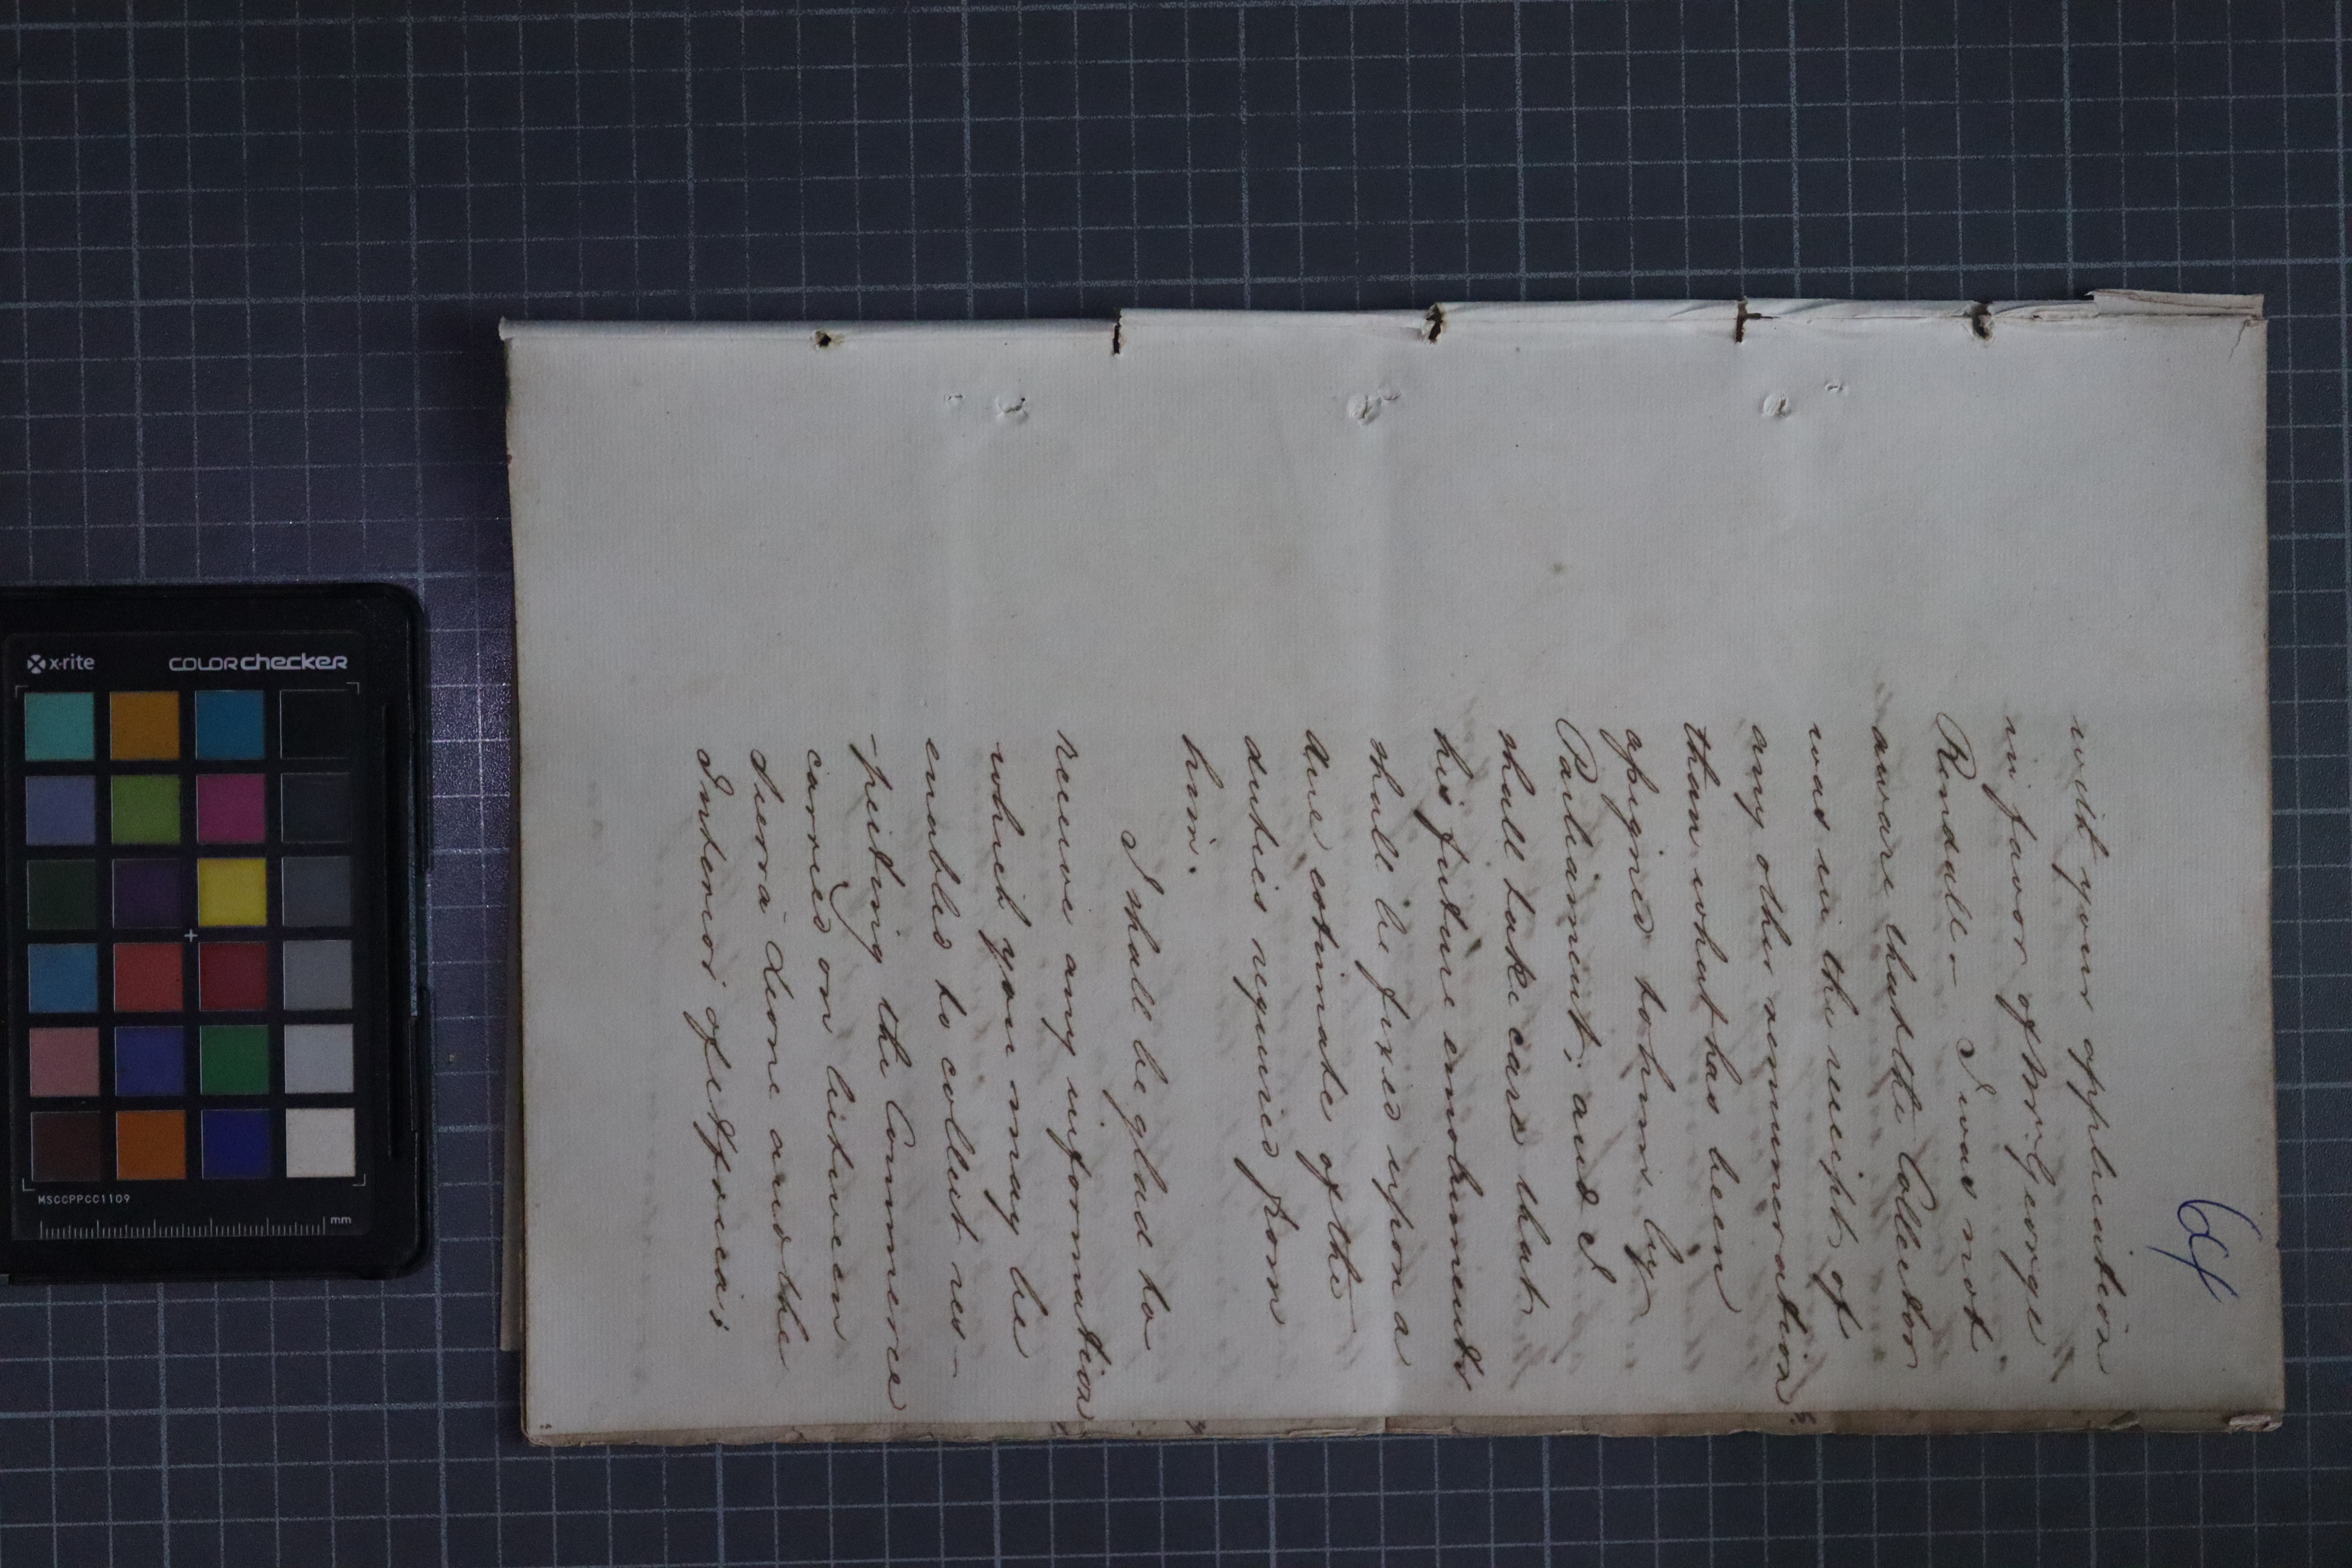 64
with your application
in favor of Mr. George
Rendall – I was not
aware that the Collector
was in the receipt of
any other remuneration
than what has been
assigned to him by
Parliament; and I
shall take care that
his future emoluments
shall be fixed upon a
due estimate of the
duties required from
him.
I shall be glad to
receive any information
which you may be
enabled to collect res-
-pecting the Commerce
carried on between
Sierra Leone and the
Interior of Africa;
x-rite
COLORchecker
MSCCPPCC1109
mm